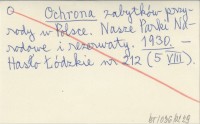 O Ochrona zabytków przy-
rody w Polsce. Nasze Parki Na-
rodowe i rezerwaty. 1930.—
Hasło Łódzkie nr 212 (5 VIII).
br/1096/61/29